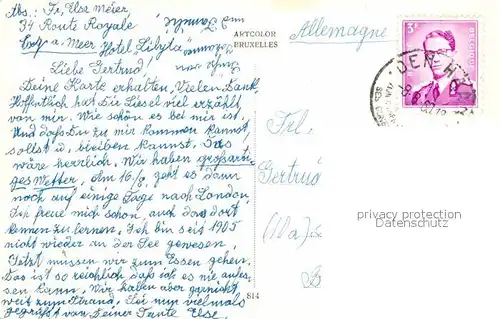 Abs: Frl. Else Meier
34 Route Royale
a. Meer Hotel Libylta
und Familie
ARTCOLOR
BRUXELLES
Liebe Gertrud!
Deine Karte erhalten, Vielen Dank,
Hoffentlich hat Dir Liesel viel erzählt
von mir. Wie schön es bei mir ist,
Und daß Du zu mir kommen kannst,
sollst u. bleiben kannst. Das
wäre herrlich. Wir haben großarti-
ges Wetter, am 16./8. geht es dann
noch auf einige Tage nach London,
Ich freue mich schon, auch das dort
kennen zu lernen. Ich bin seit 1905
nicht wieder an der See gewesen,
Jetzt müssen wir zum Essen gehen.
Das ist so reichlich, daß ich es nie aufes-
sen kann. Wir haben aber garnicht
weit zum Strand. Sei nun vielmals
gegrüßt von Deiner Tante Else.
814
Allemagne
3F
DEN-H
Frl.
Gertrud
(10a)
privacy protection
Datenschutz